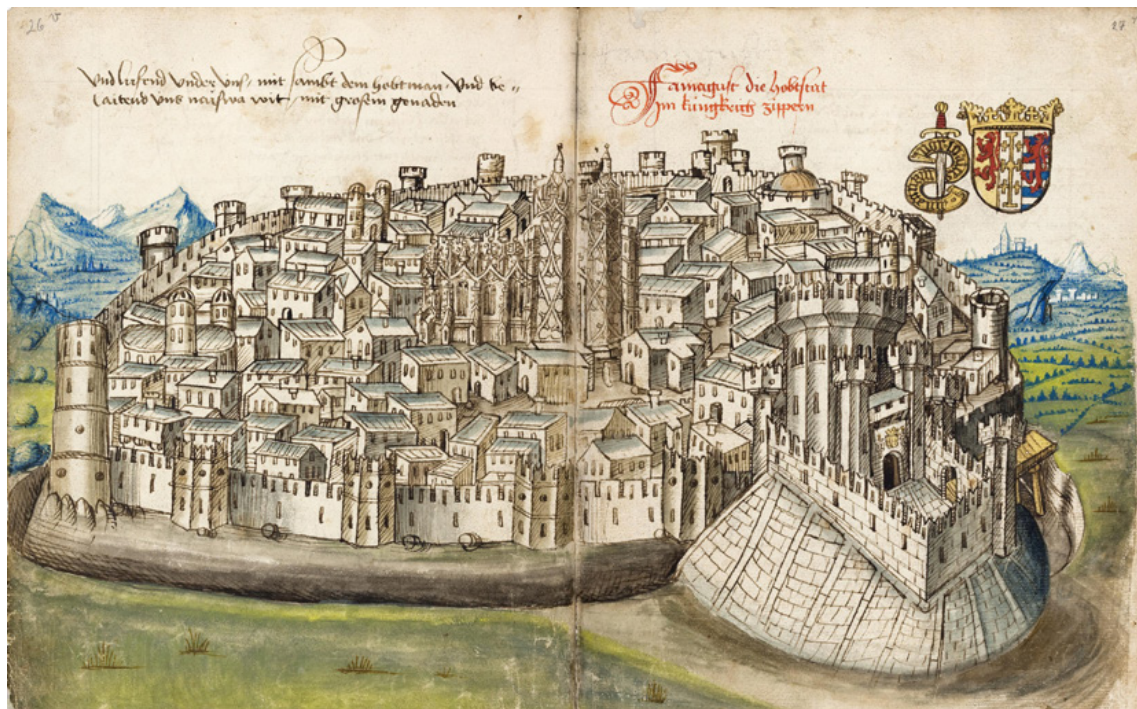 26 v
27 r
Vnd lusend Vnder Vns, mit sambt dem hobtman Vnd be„
laitend Vns neiswa wit, mit grosin genaden
Famagust die hobtstat
Im küngkrich zippern